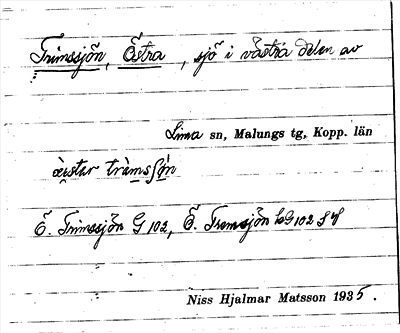 Trimssjön, Östra, sjö i västra delen av
Lima sn, Malungs tg, Kopp. län
Ö. Trimssjön G 102, Ö. Tremsjön
Niss Hjalmar Matsson 1935.